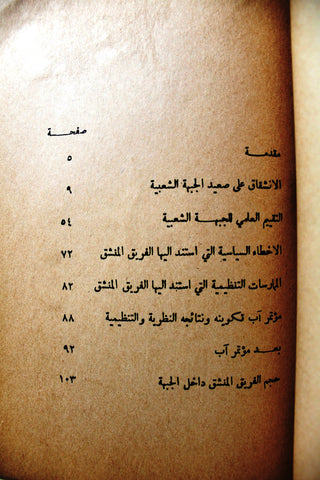 صفحة
مقدمة ٥
الانشقاق على صعيد الجبهة الشعبية ٩
التقييم العلمي للجبهة الشعبية ٥٤
الاخطاء السياسية التي استند اليها الفريق المنشق ٧٢
الممارسات التنظيمية التي استند اليها الفريق المنشق ٨٢
مؤتمر آب تكوينه ونتائجه النظرية والتنظيمية ٨٨
بعد مؤتمر آب ٩٢
حجم الفريق المنشق داخل الجبهة ١٠٣